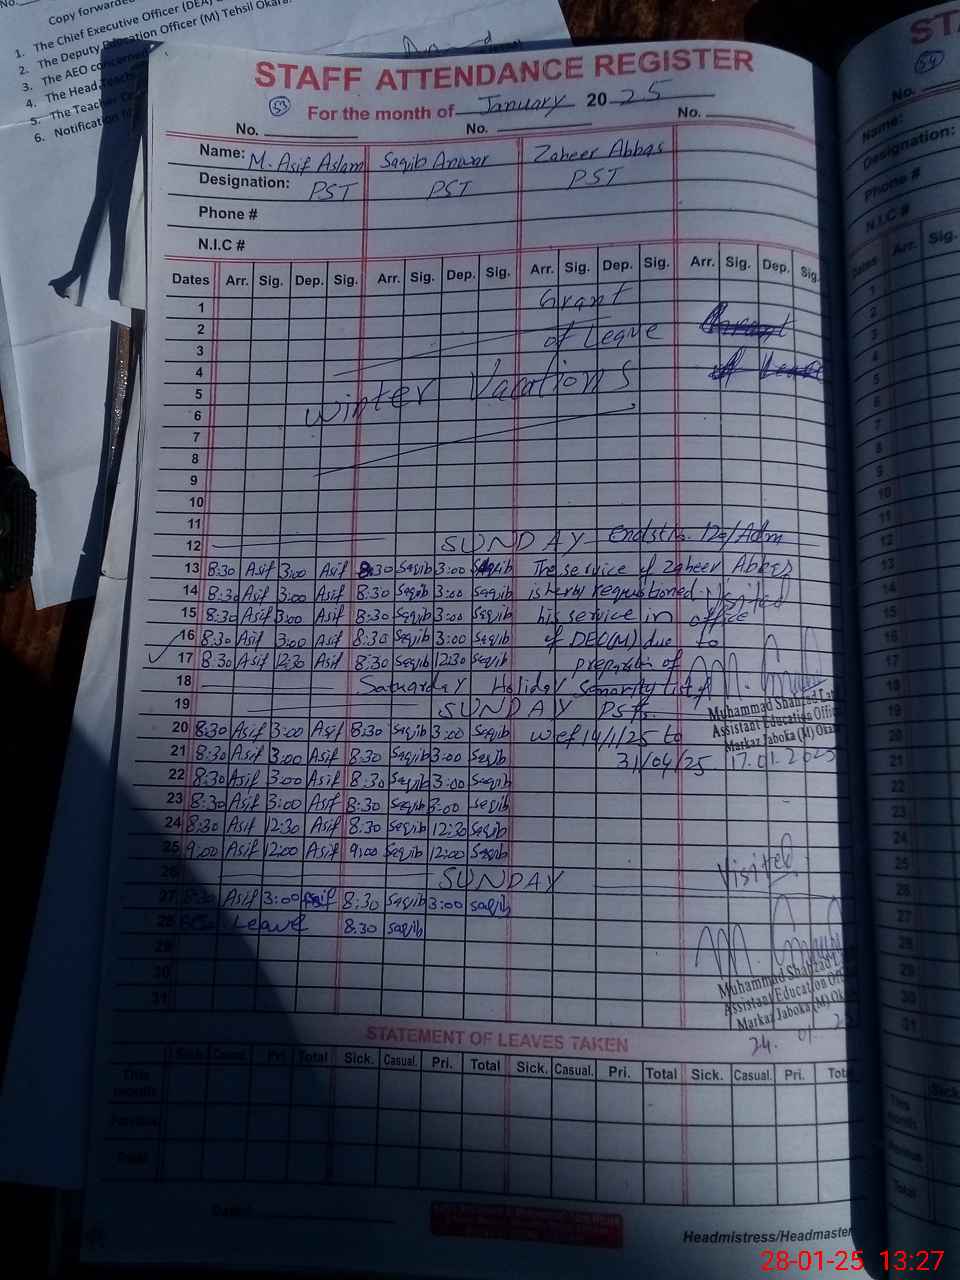 Copy forwarded
1. The Chief Executive Officer (DEA)
2. The Deputy Education Officer (M) Tehsil Okara
3. The AEO concerned
4. The Head Teach
5. The Teacher Co
6. Notification
STAFF ATTENDANCE REGISTER
53 For the month of January 2025
No. No. No.
Name: M. Asif Aslam Saqib Anwar Zaheer Abbas
Designation: PST PST PST
Phone #
N.I.C #
Dates Arr. Sig. Dep. Sig. Arr. Sig. Dep. Sig. Arr. Sig. Dep. Sig. Arr. Sig. Dep. Sig.
1 Grant
2 of Leave
3
4
5 Winter Vacations
6
7
8
9
10
11
12 SUNDAY Endst No. 120/Adm
13 8:30 Asif 3:00 Asif 8:30 Saqib 3:00 Saqib The service of Zaheer Abbas
14 8:30 Asif 3:00 Asif 8:30 Saqib 3:00 Saqib is hereby requisitioned. Visited
15 8:30 Asif 3:00 Asif 8:30 Saqib 3:00 Saqib his service in office
16 8:30 Asif 3:00 Asif 8:30 Saqib 3:00 Saqib of DEO(M) due to
17 8:30 Asif 12:30 Asif 8:30 Saqib 12:30 Saqib preparation of
18 Saturday Holiday Seniority list of
19 SUNDAY PSTs.
20 8:30 Asif 3:00 Asif 8:30 Saqib 3:00 Saqib wef 14/1/25 to
21 8:30 Asif 3:00 Asif 8:30 Saqib 3:00 Saqib 31/04/25
22 8:30 Asif 3:00 Asif 8:30 Saqib 3:00 Saqib
23 8:30 Asif 3:00 Asif 8:30 Saqib 3:00 Saqib
24 8:30 Asif 12:30 Asif 8:30 Saqib 12:30 Saqib
25 9:00 Asif 12:00 Asif 9:00 Saqib 12:00 Saqib
26 SUNDAY
27 8:30 Asif 3:00 Asif 8:30 Saqib 3:00 Saqib
28 Leave 8:30 Saqib
29
30
31
Muhammad Shahzad
Assistant Education Offi
Markaz Jaboka (M) Oka
17.01.2025
Visited
Muhammad Shahzad
Assistant Education Of
Markaz Jaboka (M) Ok
24. 01. 2
STATEMENT OF LEAVES TAKEN
Sick. Casual. Pri. Total Sick. Casual. Pri. Total Sick. Casual. Pri. Total Sick. Casual. Pri. Tot
This month
Previous
Total
Headmistress/Headmaster
STA
54
No.
Name:
Designation:
Phone #
N.I.C #
Dates Arr. Sig.
28-01-25 13:27